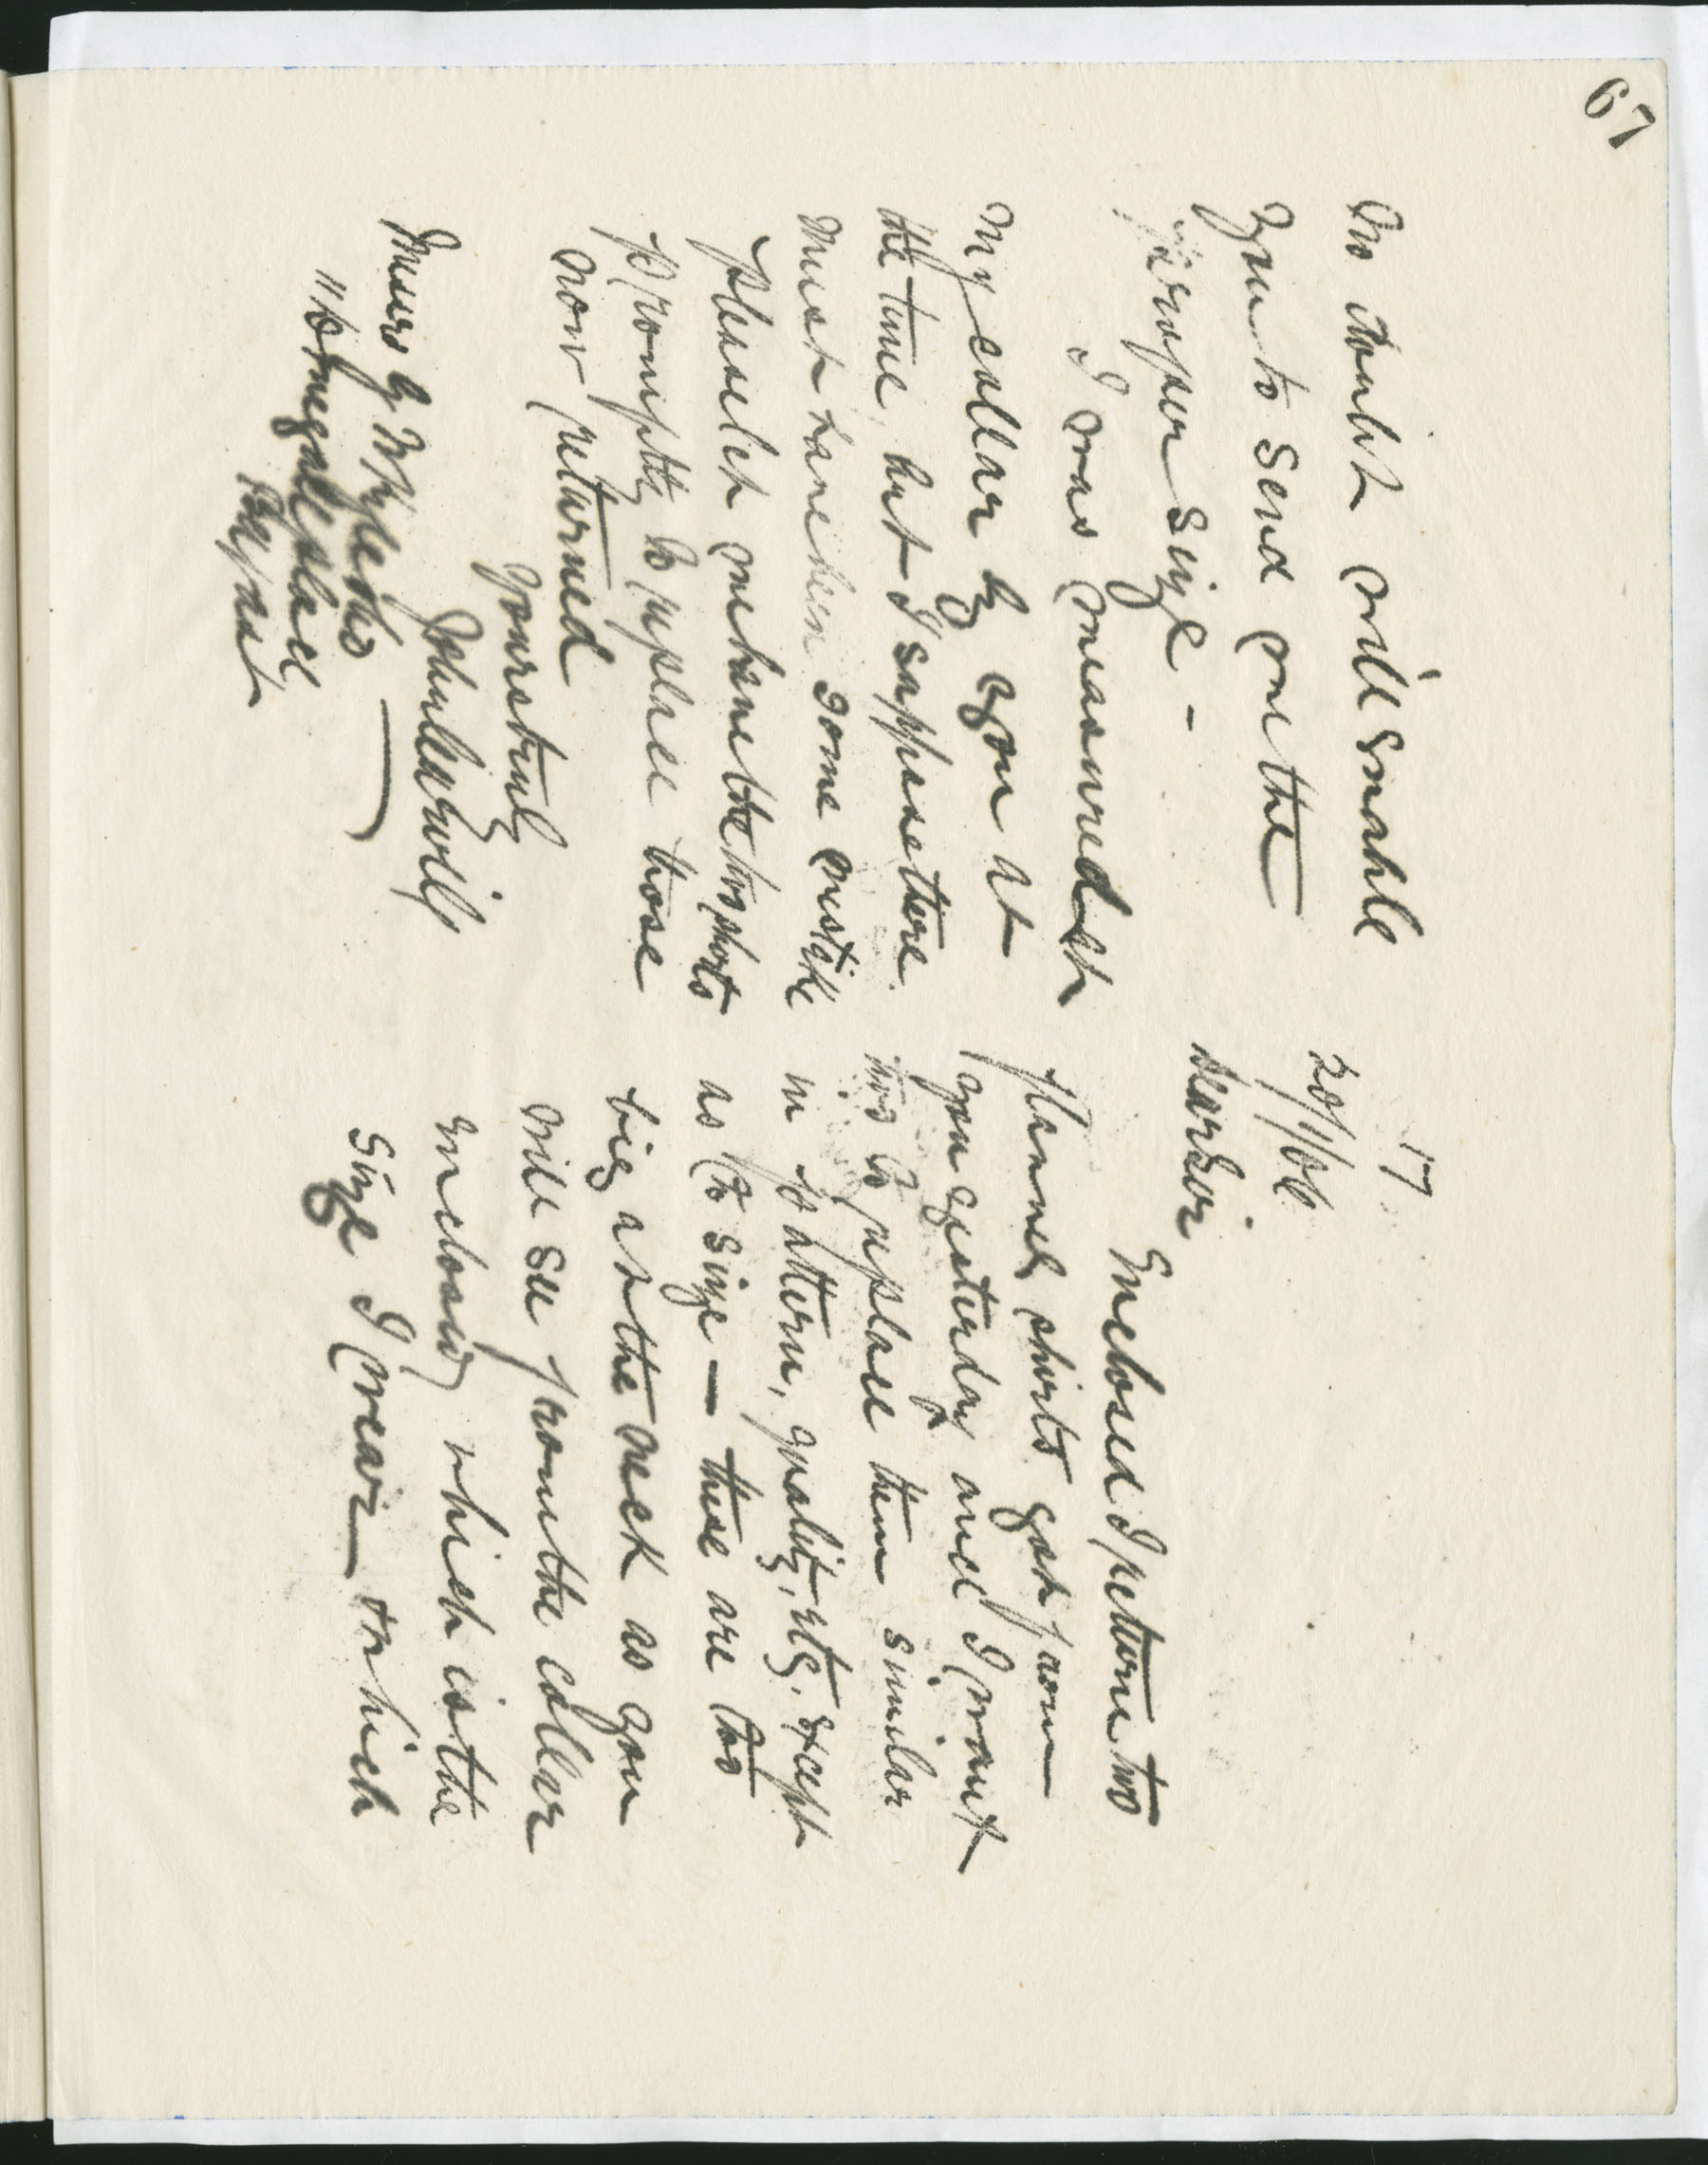 67
17
20/1/06
Dear Sir
Enclosed I return two
flannel shirts got from
you yesterday and I want
two to replace them similar
in pattern, quality, etc. except
as to size — these are too
big at the neck as you
will see from the collar
enclosed which is the
size I wear — which
no doubt will enable
you to send me the
proper size -
I was measured at
my collar by you at
the time, but I suppose there
must have been some mistake
please let me have the two shirts
promptly to replace those
now returned
Yours truly
John
Messrs
Donegall Place
Belfast